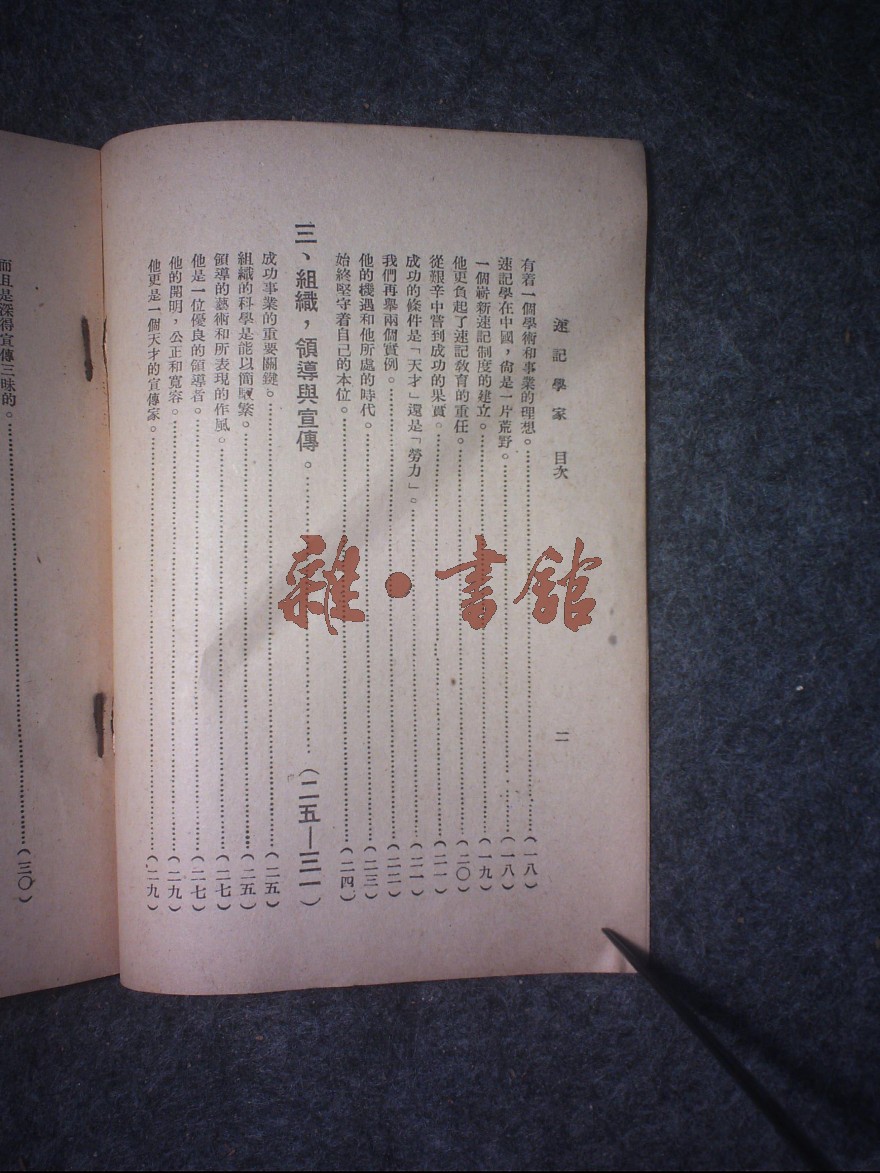 速記學家 目次 二
有着一個學術和事業的理想。……(一八)
速記學在中國，尙是一片荒野。……(一八)
一個嶄新速記制度的建立。……(一九)
他更負起了速記敎育的重任。……(二〇)
從艱辛中嘗到成功的果實。……(二一)
成功的條件是「天才」還是「勞力」。……(二一)
我們再舉兩個實例。……(二二)
他的機遇和他所處的時代。……(二三)
始終堅守着自己的本位。……(二四)
三、組織，領導與宣傳。……(二五—三一)
成功事業的重要關鍵。……(二五)
組織的科學是能以簡馭繁。……(二五)
領導的藝術和所表現的作風。……(二七)
他是一位優良的領導者。……(二七)
他的開明，公正和寬容。……(二九)
他更是一個天才的宣傳家。……(二九)
而且是深得宣傳三昧的。……(三〇)
雜·書館